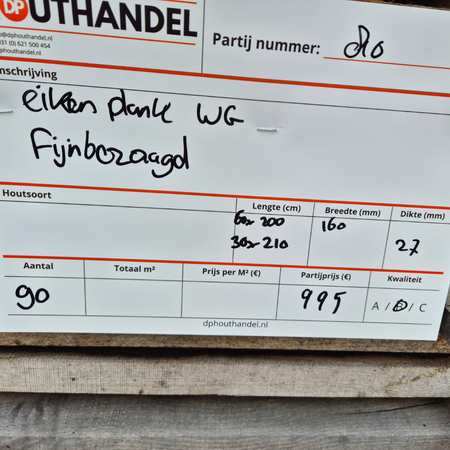 DP OUTHANDEL
o@dphouthandel.nl
31 (0) 621 500 454
phouthandel.nl
Partij nummer:
mschrijving
eiken plank WG
Fijnbezaagd
Houtsoort Lengte (cm) Breedte (mm) Dikte (mm)
60x 200 160
30x 210 27
Aantal Totaal m² Prijs per M² (€) Partijprijs (€) Kwaliteit
90 995 A / B / C
dphouthandel.nl